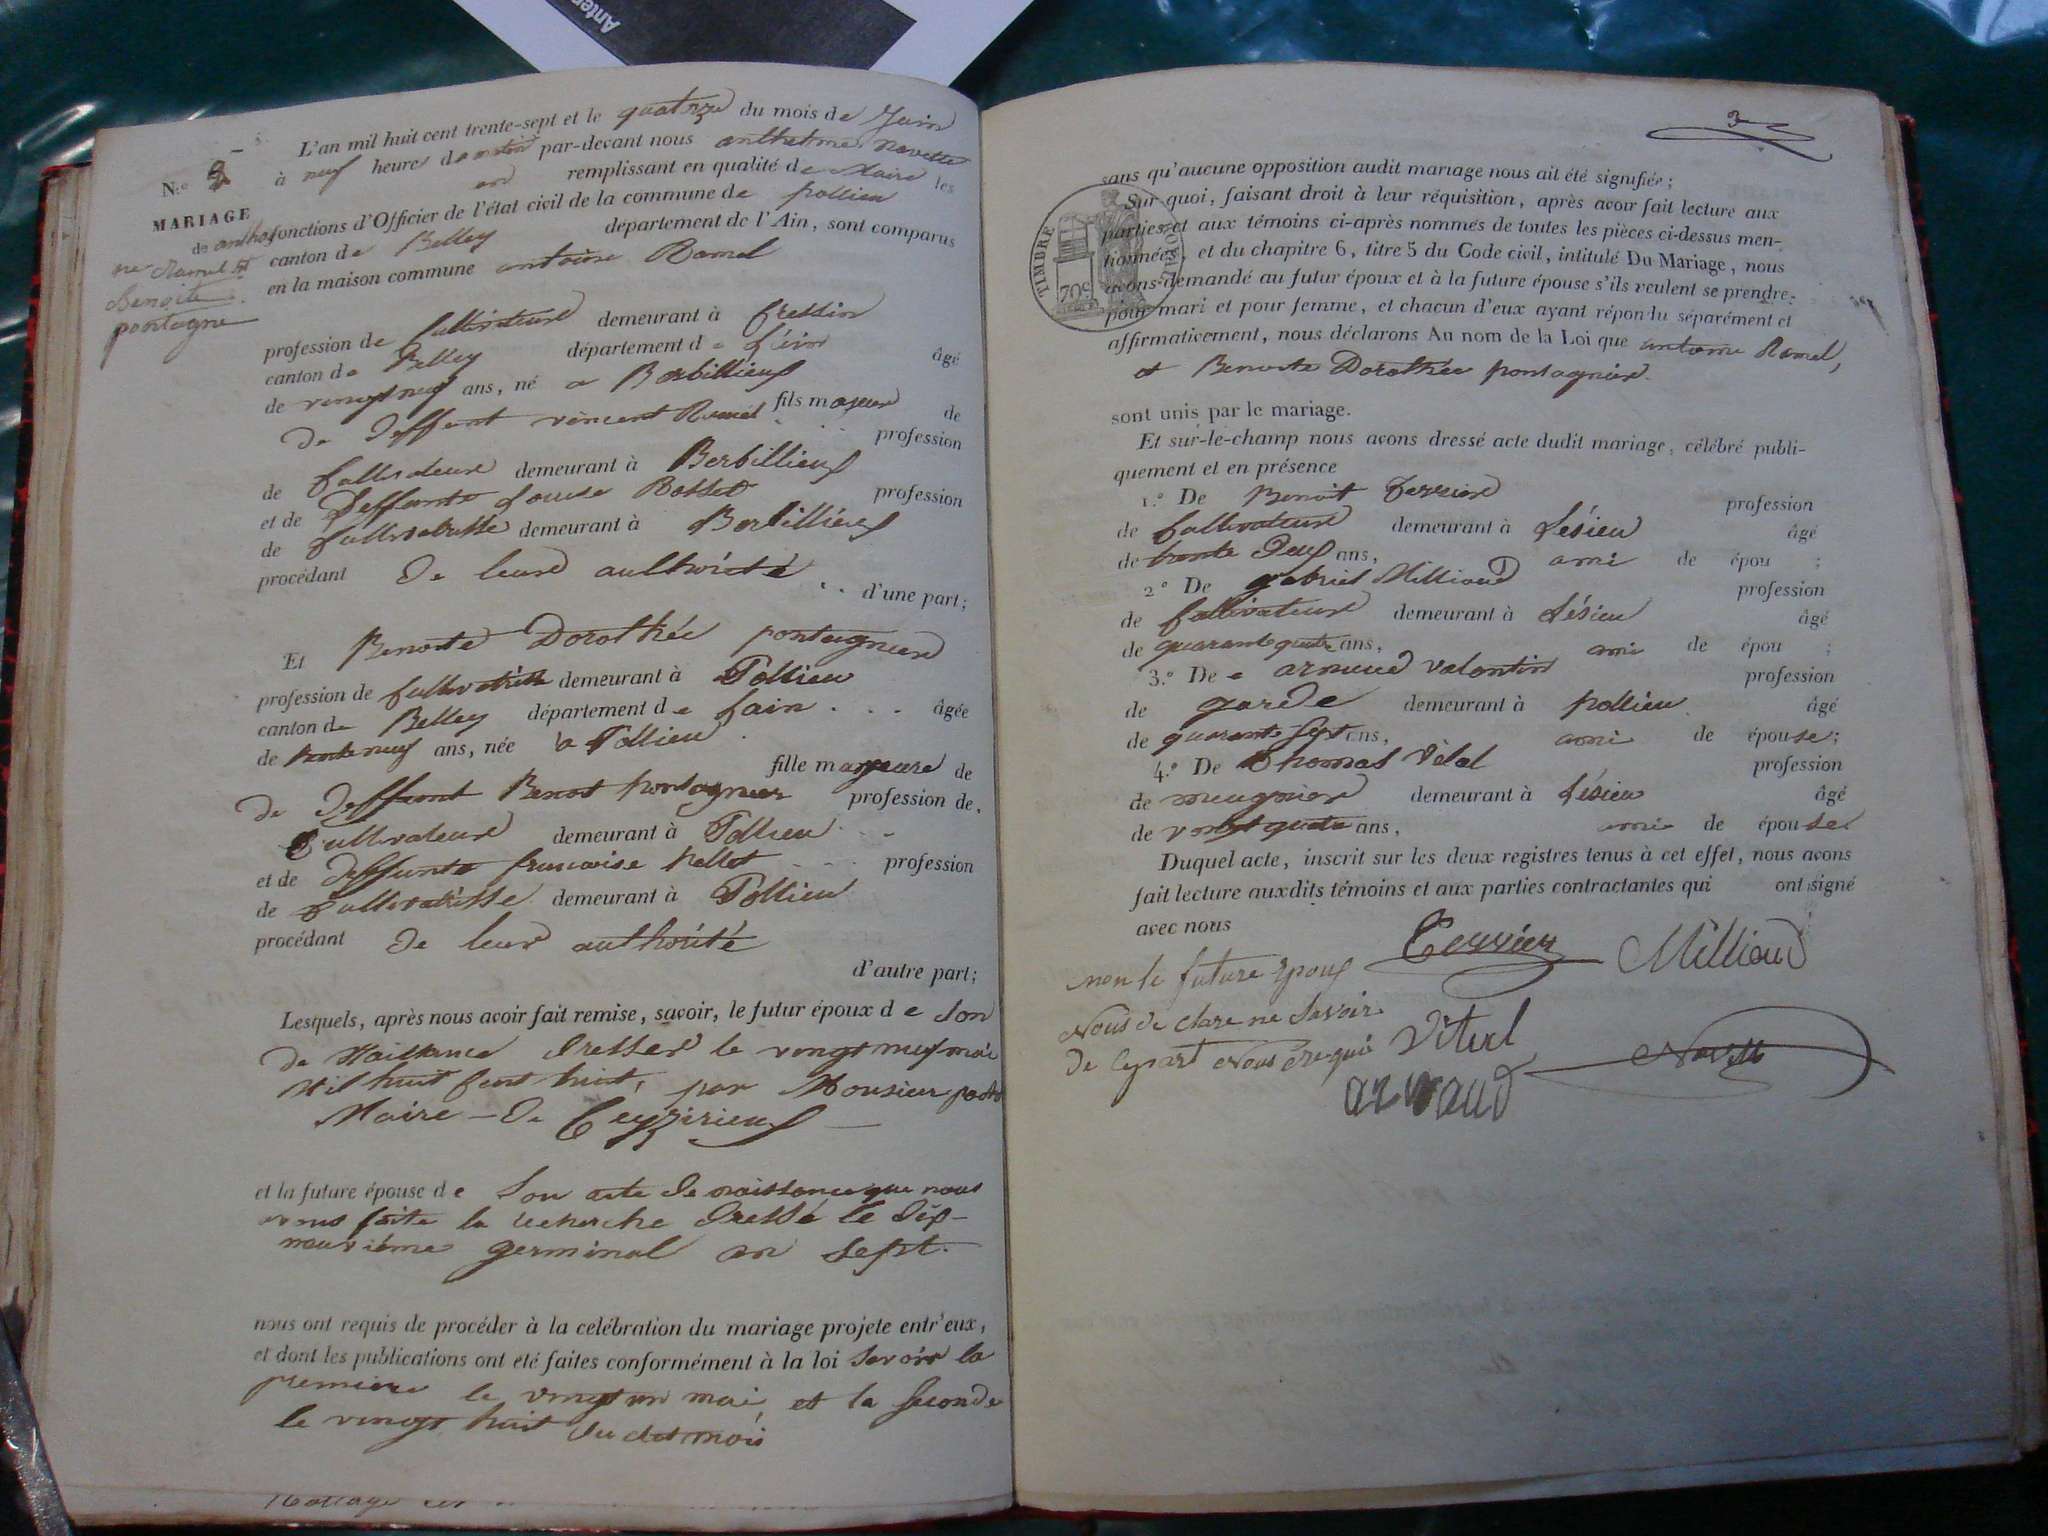 L'an mil huit cent trente-sept et le quatorze du mois de Juin
à neuf heure de matin par-devant nous anthelme navette
remplissant en qualité de Maire les
fonctions d'Officier de l'état civil de la commune de pollieu
canton de Belley département de l'Ain, sont comparus
en la maison commune antoine Ramel
N.º 2
MARIAGE
de antho
ne Ramel et
Benoite
pontagne
profession de Cultivateur demeurant à Cressin
canton de Belley département de l'ain âgé
de vingt neuf ans, né a Borbillieux
fils majeur de
de deffent vincent Ramel profession
de Cultivateur demeurant à Borbillieux
et de Deffunte Louise Bosset profession
de Cultivatrisse demeurant à Borbillieux
procédant de leur authorité
d'une part;
Et Benoite Dorothée pontagnier
profession de Cultivatrisse demeurant à Pollieu
canton de Belley département de lain âgée
de trente neuf ans, née a Pollieu
fille mageure de
de deffunt Benoit pontagnier profession de,
Cultivateur demeurant à Pollieu
et de deffunte francoise pellet profession
de Cultivatrisse demeurant à Pollieu
procédant de leur authorité
d'autre part;
Lesquels, après nous avoir fait remise, savoir, le futur époux de son
de Naissance dresser le vingt neuf mai
Mil huit cent huit, par Monsieur
Maire de Ceyzirieux
et la future épouse de son acte de naissance que nous
avons faite la recherche dressé le dix-
neuvième germinal an sept.
nous ont requis de procéder à la celébration du mariage projete entr'eux,
et dont les publications ont été faites conformément à la loi savoir la
premiere le vingt un mai, et la seconde
le vingt huit du dit mois
3
sans qu'aucune opposition audit mariage nous ait été signifiée;
Sur quoi, faisant droit à leur réquisition, après avoir fait lecture aux
parties et aux témoins ci-après nommés de toutes les pièces ci-dessus men-
tionnées, et du chapitre 6, titre 5 du Code civil, intitulé Du Mariage, nous
avons demandé au futur époux et à la future épouse s'ils veulent se prendre
pour mari et pour femme, et chacun d'eux ayant répondu séparément et
affirmativement, nous déclarons Au nom de la Loi que antoine Ramel,
et Benoite Dorothée pontagnier.
TIMBRE ROYAL
70c
sont unis par le mariage.
Et sur-le-champ nous avons dressé acte dudit mariage, célébré publi-
quement et en présence
1.º De Benoit profession
de Cultivateur demeurant à Lésieu âgé
de trente deux ans, ami de épou ;
2.º De gabriel Milliaud profession
de Cultivateur demeurant à Lésieu âgé
de quarante quatre ans, ami de épou ;
3.º De arnaud valentin profession
de garde demeurant à pollieu âgé
de quarante sept ans, ami de épouse;
4.º De Thomas Vital profession
de meugnier demeurant à Lésieu âgé
de vingt quatre ans, ami de épouse
Duquel acte, inscrit sur les deux registres tenus à cet effet, nous avons
fait lecture auxdits témoins et aux parties contractantes qui ont signé
avec nous
non le future Epoux
Milliaud
Nous de clare ne savoir
de Nous
Vital
Navette
arnaud